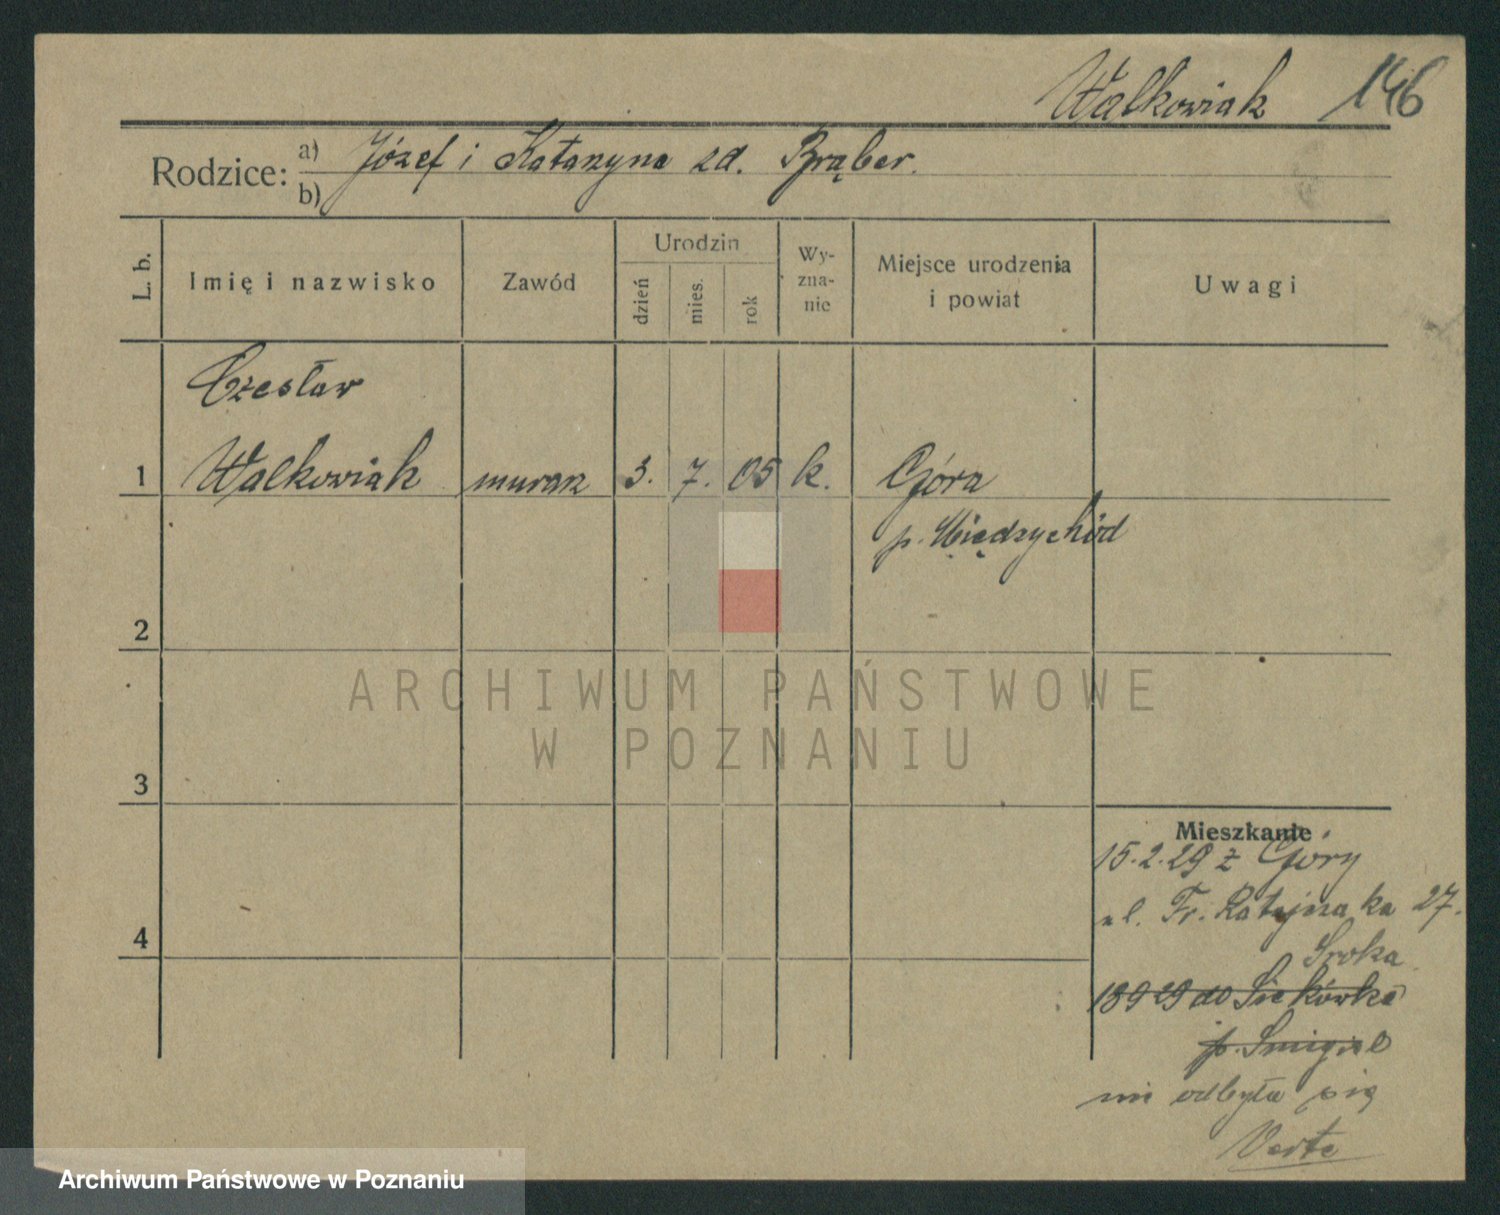 Walkowiak 146
Rodzice: a) Józef i Katarzyna zd. Brąber.
b)
L. b.
Imię i nazwisko
Zawód
Urodzin
dzień
mies.
rok
Wy-
zna-
nie
Miejsce urodzenia
i powiat
Uwagi
Czesław
1 Walkowiak murarz 3. 7. 05 k. Góra
p. Międzychód
2
ARCHIWUM PAŃSTWOWE
W POZNANIU
3
Mieszkanie
15.2.29 z Góry
ul. Fr. Ratajczaka 27.
Sroka
4
18929 do Siekówka
p. Smigiel
nie odbyła się
Verte
Archiwum Państwowe w Poznaniu